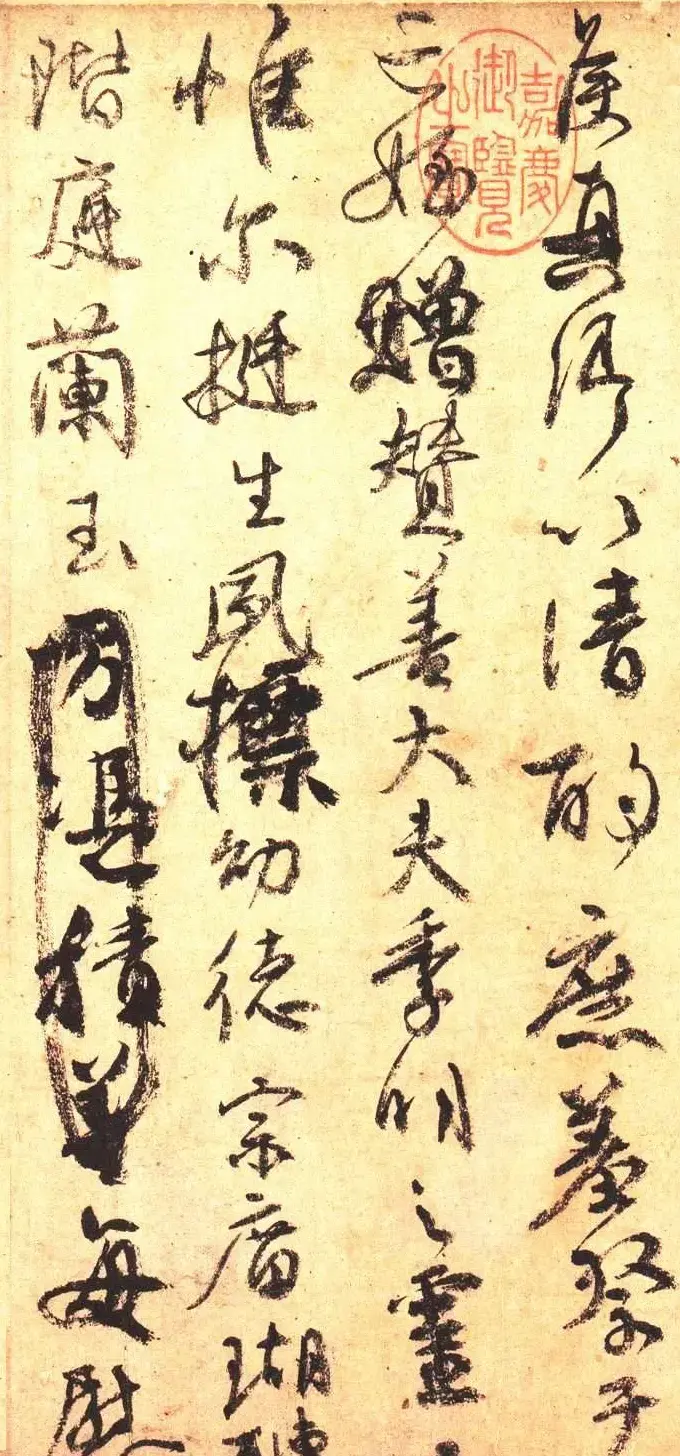 侯真卿以清酌庶羞祭于
亡姪贈贊善大夫季明之靈
惟尔挺生夙標幼德宗廟瑚璉
階庭蘭玉方憑積善每慰
嘉慶
御覽
之寶